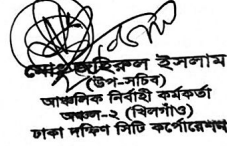 মোঃ জহিরুল ইসলাম
(উপ-সচিব)
আঞ্চলিক নির্বাহী কর্মকর্তা
অঞ্চল-২ (খিলগাঁও)
ঢাকা দক্ষিণ সিটি কর্পোরেশন